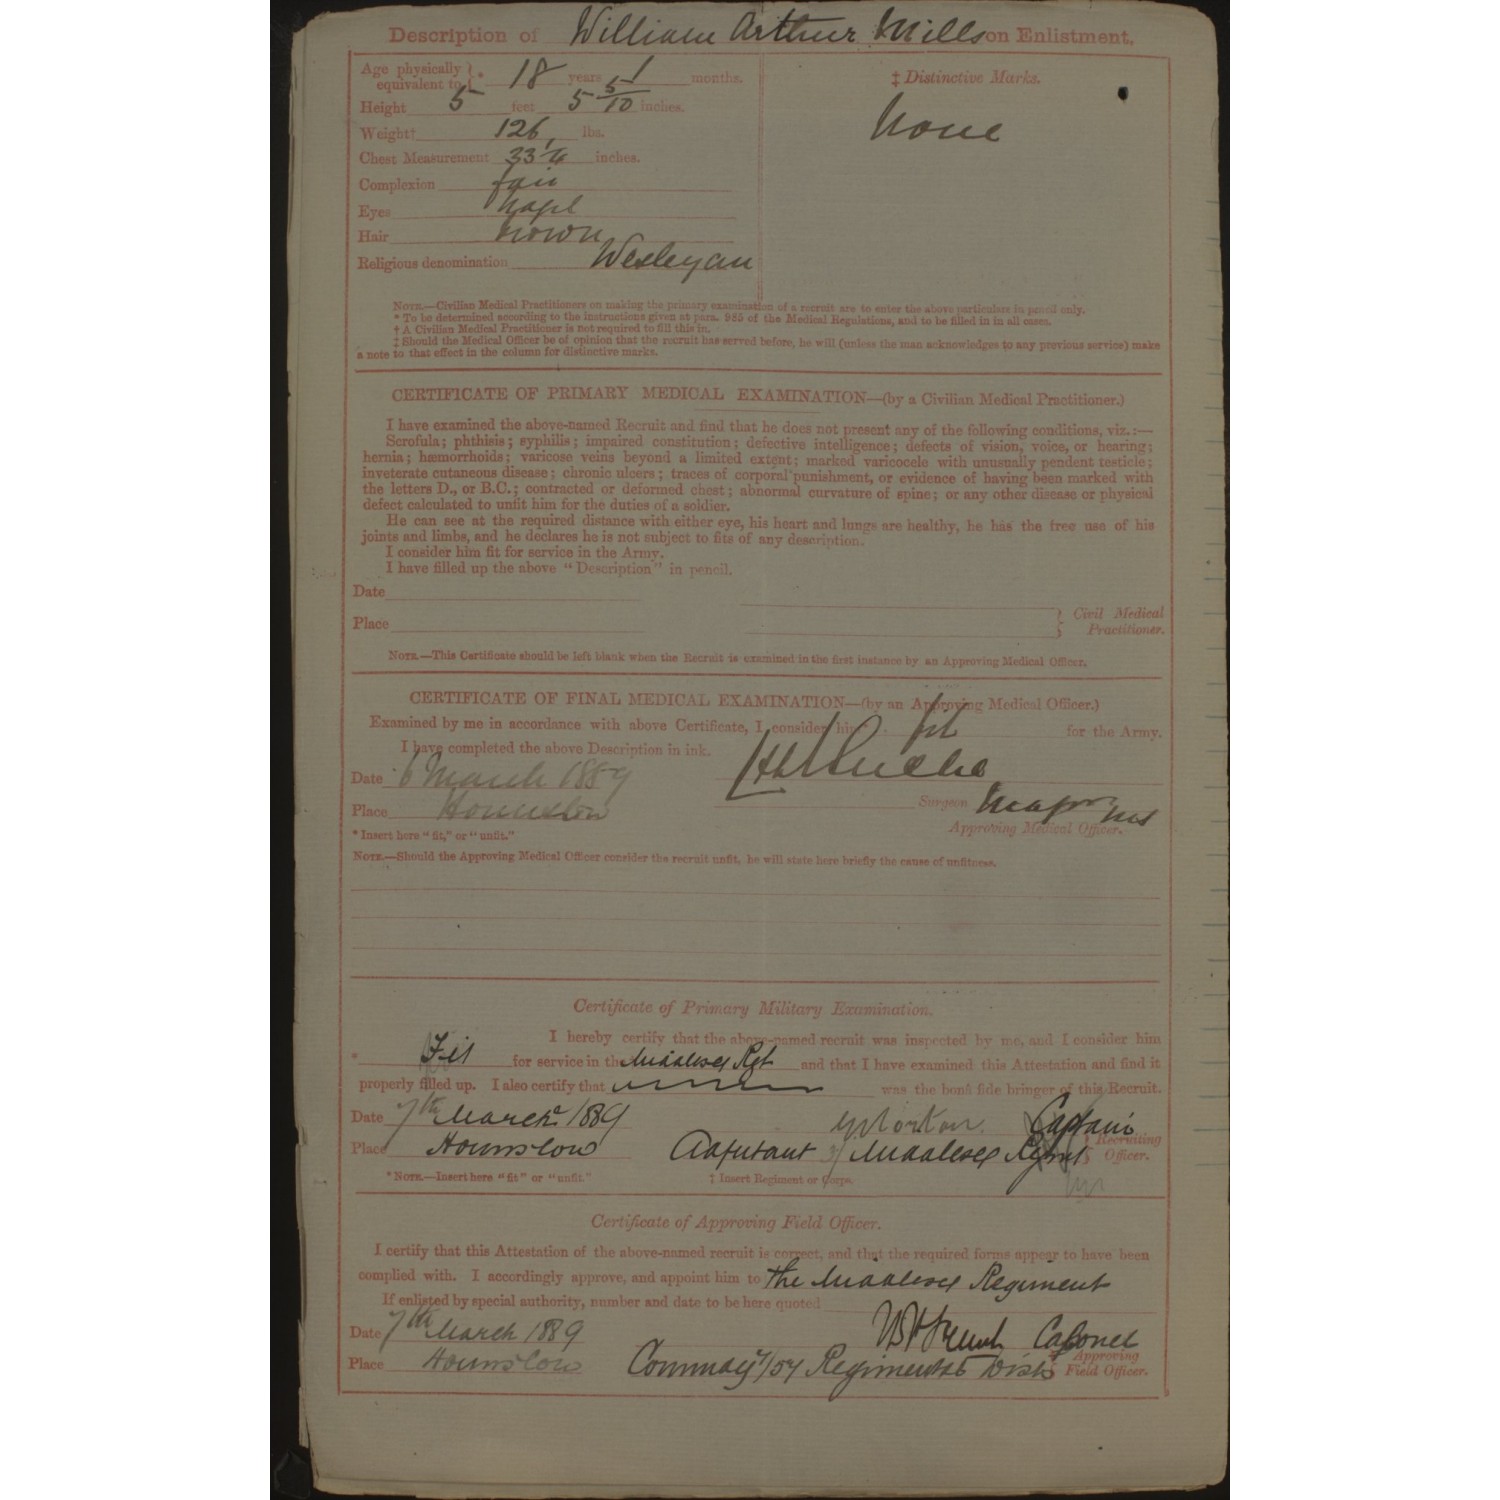 Description of William Arthur Mills on Enlistment.
Age physically equivalent to * 18 years 1 months.
Height 5 feet 5 5/10 inches.
Weight† 126 lbs.
Chest Measurement 33 1/4 inches.
Complexion fair
Eyes hazel
Hair brown
Religious denomination Wesleyan
‡ Distinctive Marks.
None
NOTE.—Civilian Medical Practitioners on making the primary examination of a recruit are to enter the above particulars in pencil only.
* To be determined according to the instructions given at para. 985 of the Medical Regulations, and to be filled in in all cases.
† A Civilian Medical Practitioner is not required to fill this in.
‡ Should the Medical Officer be of opinion that the recruit has served before, he will (unless the man acknowledges to any previous service) make
a note to that effect in the column for distinctive marks.
CERTIFICATE OF PRIMARY MEDICAL EXAMINATION—(by a Civilian Medical Practitioner.)
I have examined the above-named Recruit and find that he does not present any of the following conditions, viz.:—
Scrofula; phthisis; syphilis; impaired constitution; defective intelligence; defects of vision, voice, or hearing;
hernia; hæmorrhoids; varicose veins beyond a limited extent; marked varicocele with unusually pendent testicle;
inveterate cutaneous disease; chronic ulcers; traces of corporal punishment, or evidence of having been marked with
the letters D., or B.C.; contracted or deformed chest; abnormal curvature of spine; or any other disease or physical
defect calculated to unfit him for the duties of a soldier.
He can see at the required distance with either eye, his heart and lungs are healthy, he has the free use of his
joints and limbs, and he declares he is not subject to fits of any description.
I consider him fit for service in the Army.
I have filled up the above "Description" in pencil.
Date
Place
Civil Medical
Practitioner.
NOTE.—This Certificate should be left blank when the Recruit is examined in the first instance by an Approving Medical Officer.
CERTIFICATE OF FINAL MEDICAL EXAMINATION—(by an Approving Medical Officer.)
Examined by me in accordance with above Certificate, I consider him * fit for the Army.
I have completed the above Description in ink.
Date 6 March 1889
Place Hounslow
Surgeon Major MS
Approving Medical Officer.
* Insert here "fit," or "unfit."
NOTE.—Should the Approving Medical Officer consider the recruit unfit, he will state here briefly the cause of unfitness.
Certificate of Primary Military Examination.
I hereby certify that the above-named recruit was inspected by me, and I consider him
* Fit for service in the Middlesex Rgt and that I have examined this Attestation and find it
properly filled up. I also certify that was the bonâ fide bringer of this Recruit.
Date 7th March 1889
Morton Captain
Place Hounslow Adjutant of Middlesex Regmt Recruiting Officer.
* NOTE.—Insert here "fit" or "unfit."
‡ Insert Regiment or Corps.
Certificate of Approving Field Officer.
I certify that this Attestation of the above-named recruit is correct, and that the required forms appear to have been
complied with. I accordingly approve, and appoint him to the Middlesex Regiment
If enlisted by special authority, number and date to be here quoted
Date 7th March 1889
Colonel
Place Hounslow Commdg 57 Regimental Dist
Approving
Field Officer.